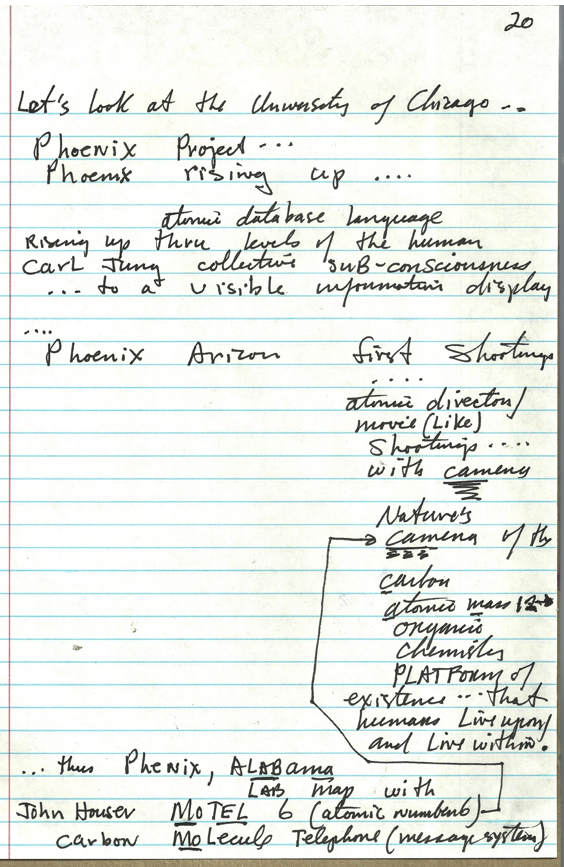 20
Let's look at the University of Chicago ..
Phoenix Project ...
Phoenix rising up ....
atomic database language
Rising up thru levels of the human
Carl Jung collective sub-consciousness
... to a visible information display
....
Phoenix Arizon first Shootings
....
atomic director/
movie (Like)
Shootings ....
with camera
Nature's
camera of the
carbon
atomic mass 12
organic
chemistry
PLATForm of
existence ... that
humans Live upon/
and Live within.
... thus Phenix, ALABama
LAB map with
John Houser MoTEL 6 (atomic number 6)
carbon MoLecule Telephone (message system)